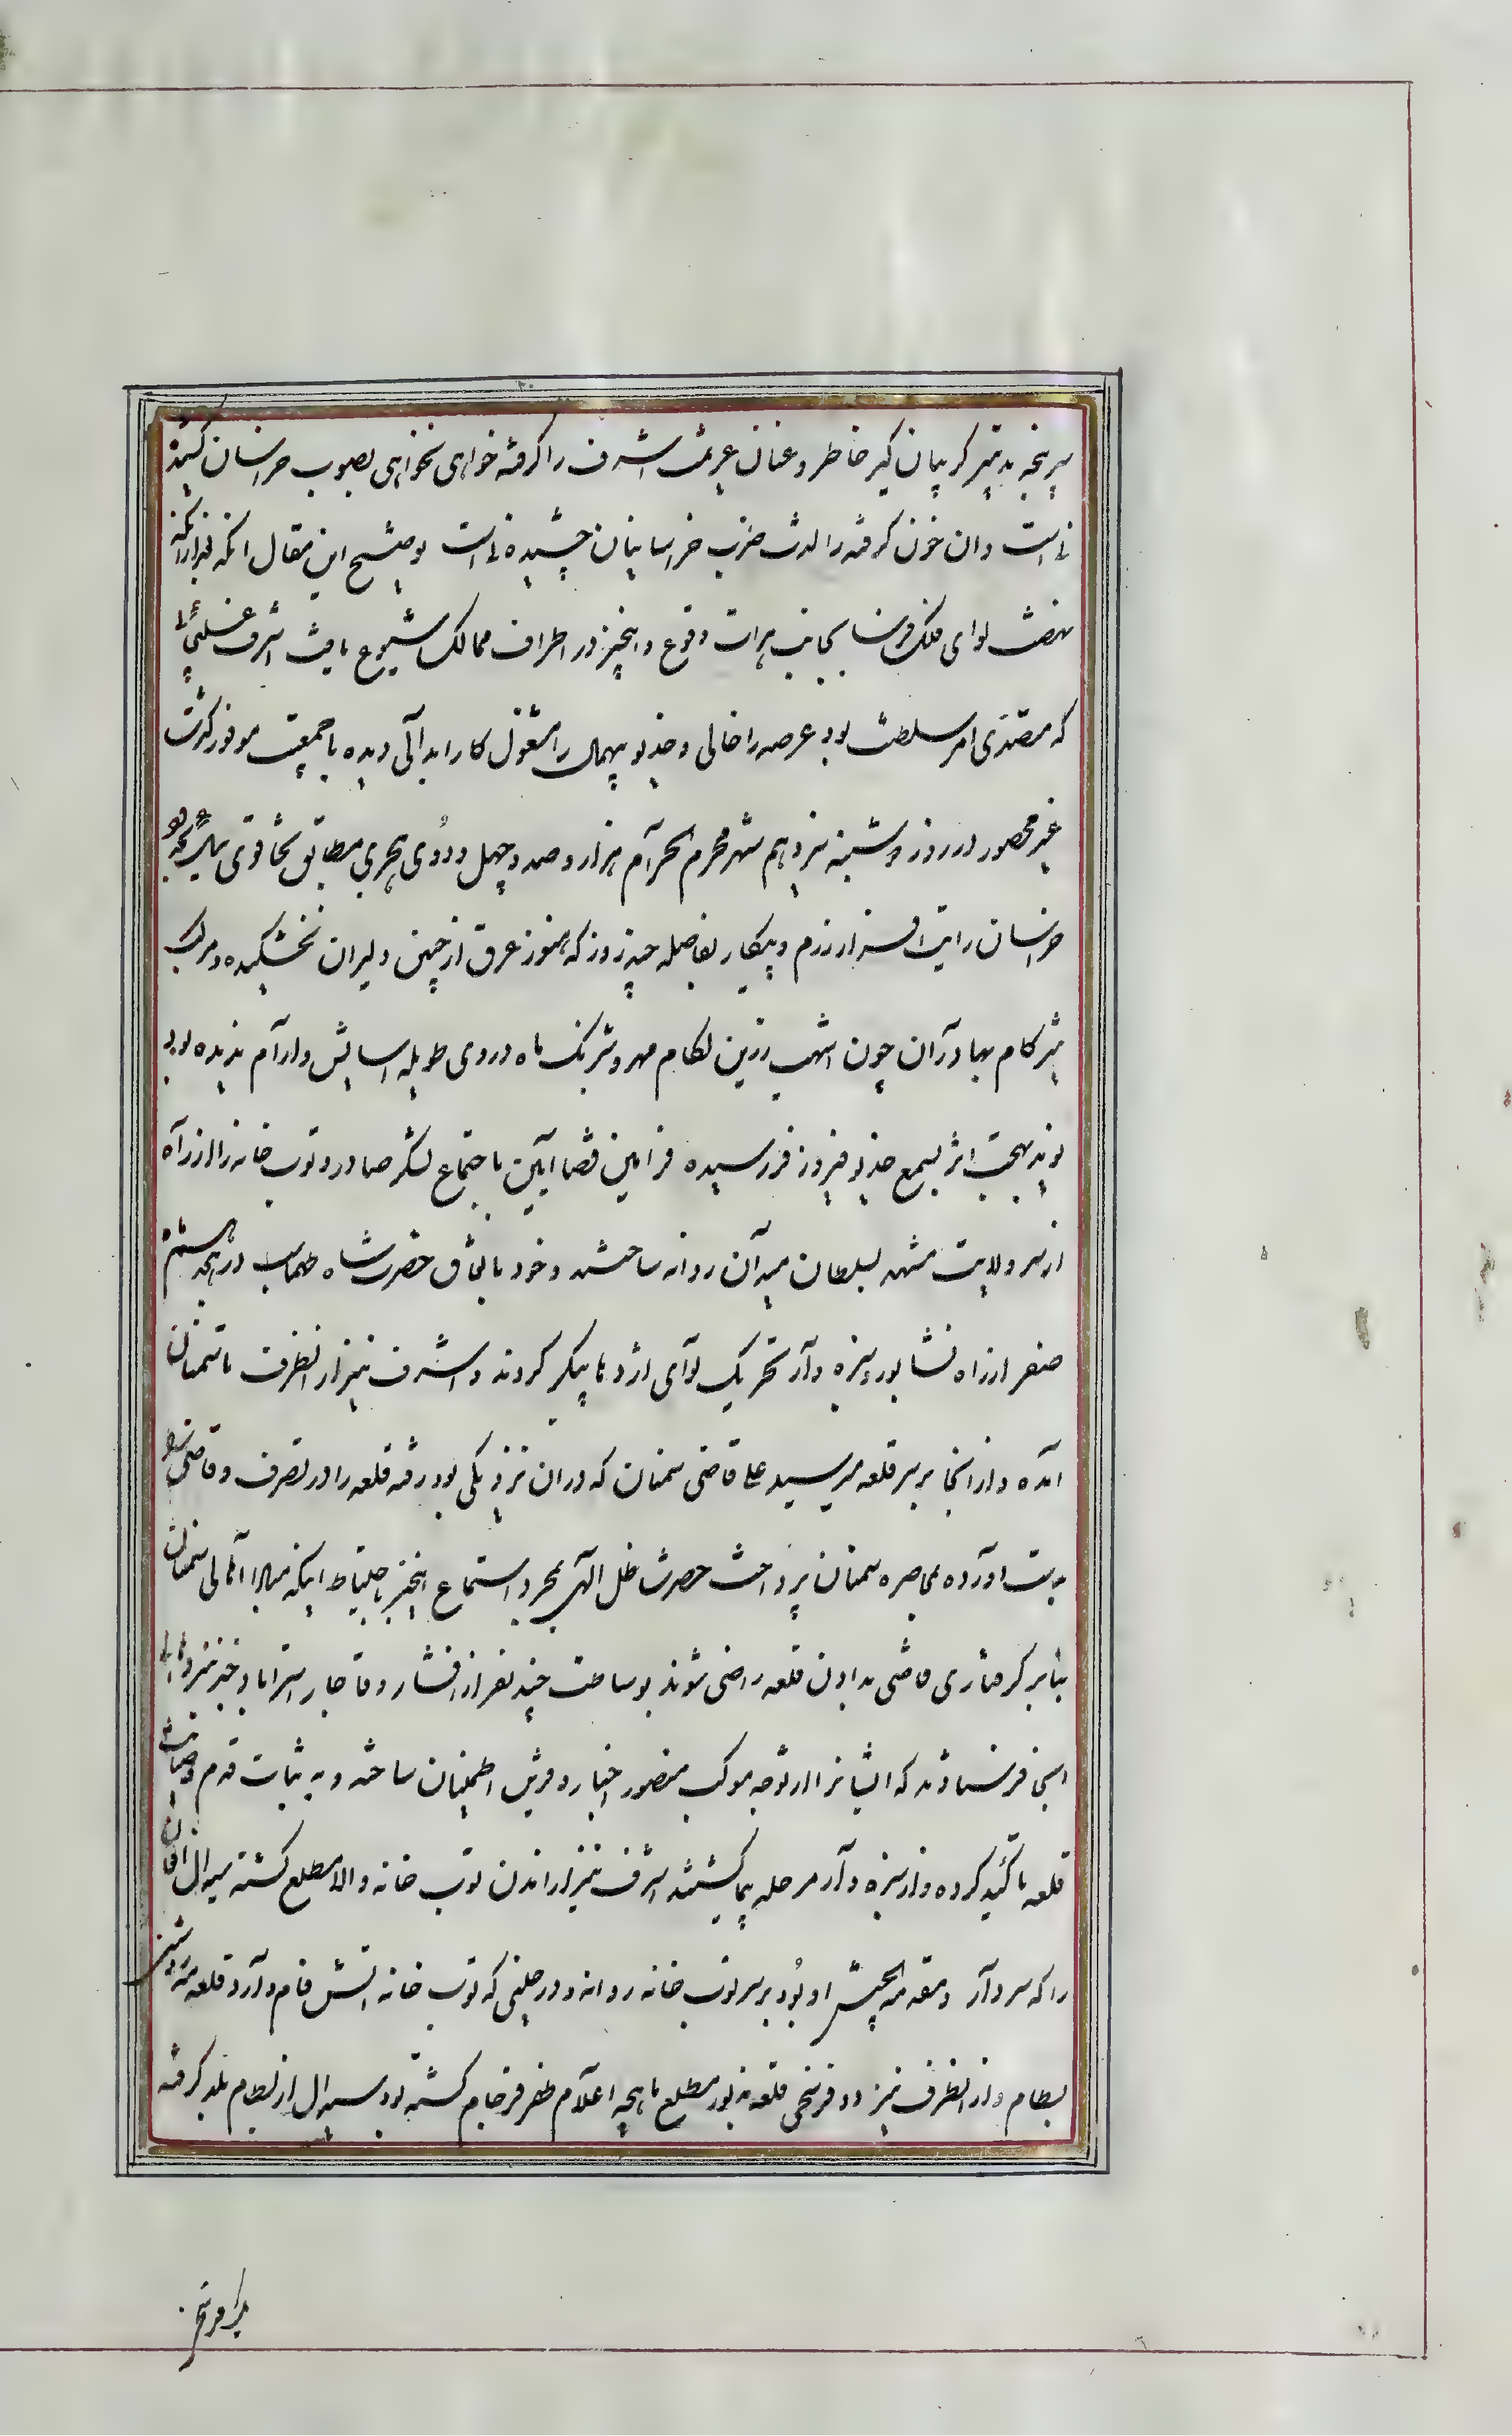 سرپنجه تدبیر گریبان گیر خاطر و عنان عزیمت اشرف را گرفته خواهی نخواهی بصوب خراسان کشیده
است و ان خون گرفته را لذت ضرب خراسانیان چشیدنی است توضیح این مقال آنکه بعد از آنکه
نهضت لوای فلک فرسا بجانب هرات وقوع و اینخبر در اطراف ممالک شیوع یافت اشرف غلیجائی
که متصدی امر سلطنت بود عرصه را خالی و خدیو بیهمال را مشغول کار ابدالی دیده با جمعیت موفور و کثرت
غیر محصور در روز دوشنبه سیزدهم شهر محرم الحرام هزار و صد و چهل و دوی هجری مطابق تخاقوی ئیل متوجه
خراسان رایت افراز رزم و پیکار بفاصله چند روز که هنوز عرق از جبین دلیران نخشکیده و مرکب
تیزکام بهادران چون اشهب زرین لگام مهر و شبرنگ ماه در وی طویله اسایش و ارام ندیده بود
نوید بهجت اثر بسمع خدیو فیروز فر رسیده فرامین قضا آیین باجتماع لشکر صادر و توپ خانه را از راه
از سر ولایت مشهد بسلطان میدان روانه ساختند و خود باتفاق حضرت شاه طهماسب در هیجدهم
صفر از راه نشابور و سبزوار تحریک لوای اژدها پیکر کردند و اشرف نیز از انطرف تا سمنان
آمده و از انجا بر سر قلعه میر سید علی قاضی سمنان که در ان نزدیکی بود رفته قلعه را در تصرف و قاضی را
بدست اورده بمحاصره سمنان پرداخت حضرت ظل الهی بمجرد استماع اینخبر باحتیاط اینکه مبادا اهالی سمنان
بنا بر گرفتاری قاضی بدادن قلعه راضی شوند بوساطت چند نفر از افشار و قاجار استراباد خبر نزد اهالی
انجا فرستادند که ایشانرا از توجه موکب منصور اخبار و قرین اطمینان ساخته و به ثبات قدم و صیانت
قلعه تاکید کرده و از سبزوار مرحله پیما گشتند اشرف نیز از راندن توپ خانه والا مطلع گشته سیدال افغان
را که سردار و مقدمة الجیش او بود بر سر توپ خانه روانه و در حینی که توپ خانه اتش فام وارد قلعه
بسطام و از انطرف نیز دو فرسخی قلعه مزبور مطلع ماهچه اعلام ظفر فرجام گشته بود سیدال از بسطام بلد گرفته